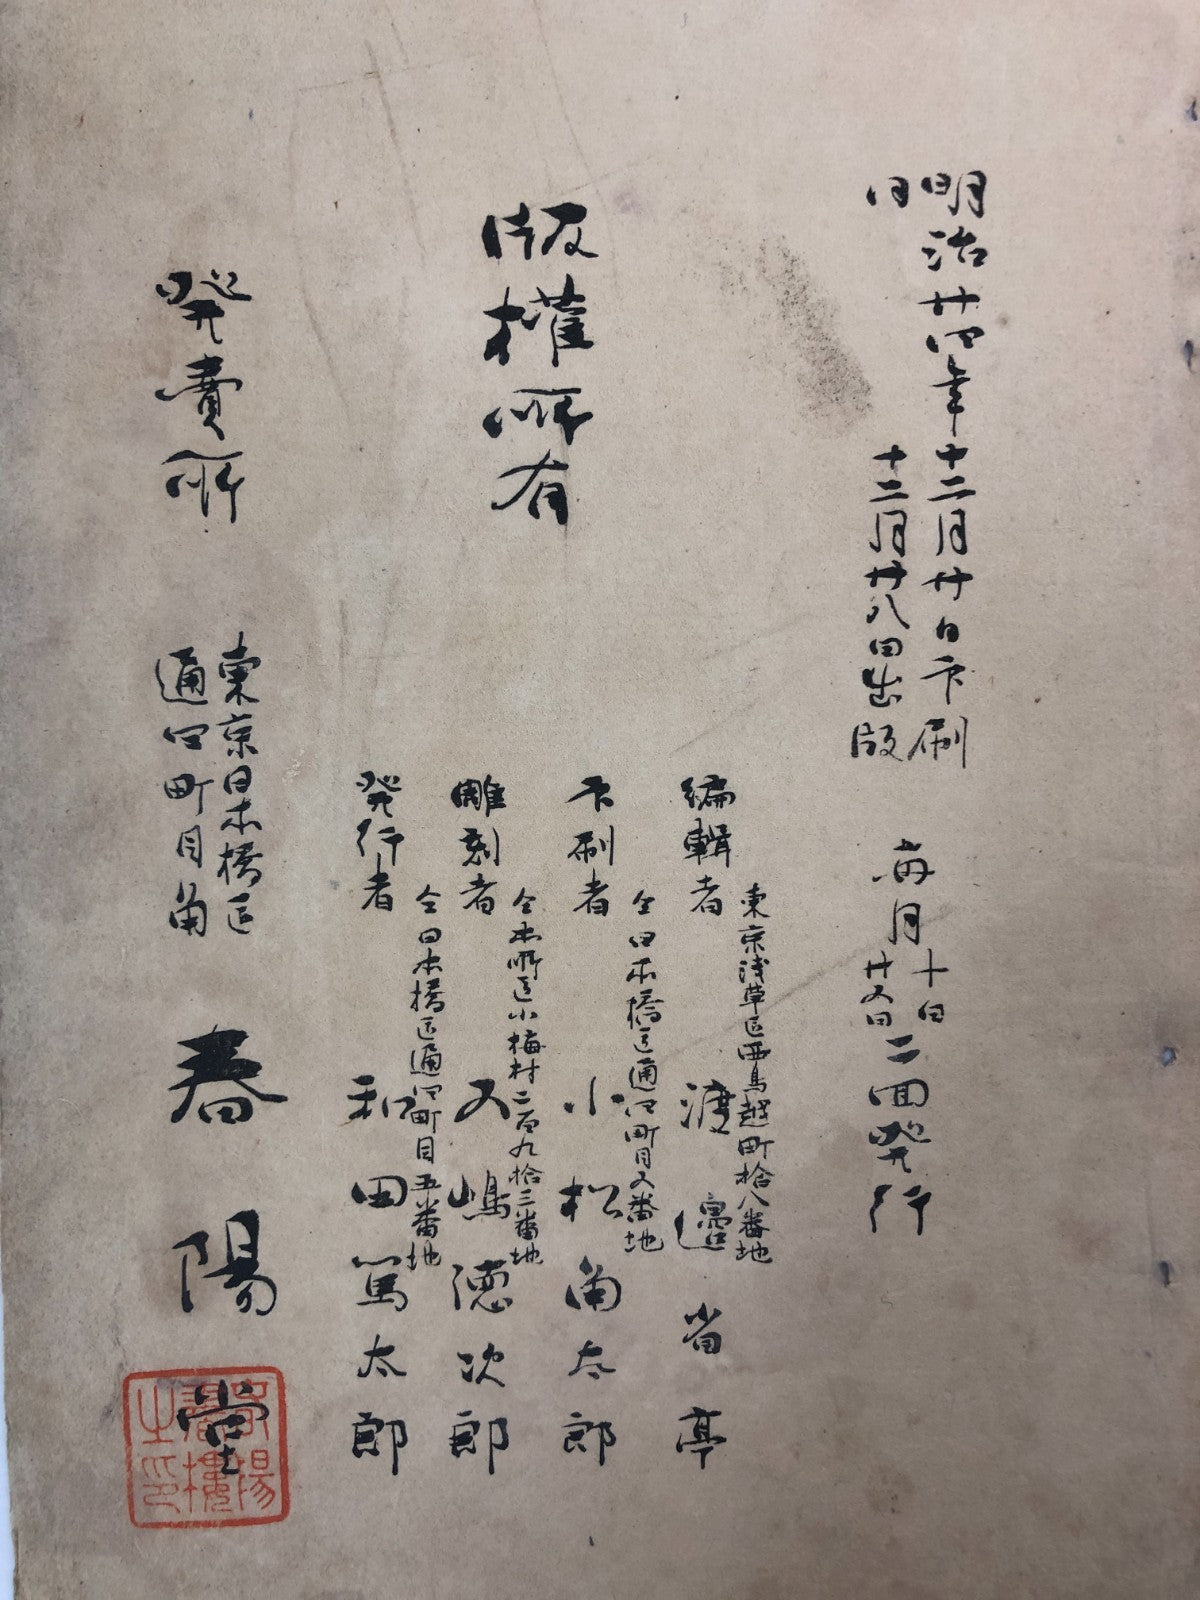 明治廿四年十二月廿日印刷
同十二月廿八日出版
毎月十日廿五日二回発行
版権所有
東京浅草区西鳥越町拾八番地
編輯者 渡邉省亭
仝日本橋区通四町目五番地
印刷者 小松角太郎
仝本所区小梅村二百九拾三番地
雕刻者 五嶋徳次郎
仝日本橋区通四町目五番地
発行者 和田篤太郎
発賣所
東京日本橋区
通四町目角
春陽堂